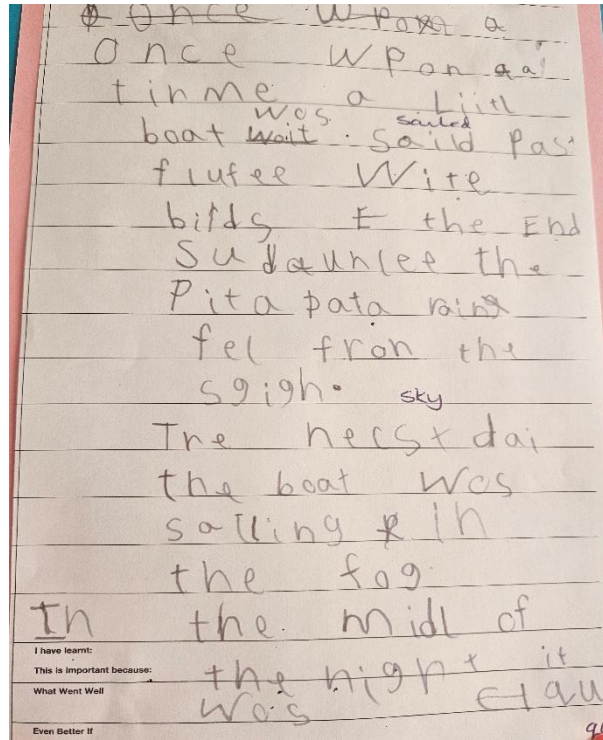 Once Wpon a
Once Wpon a a
tinme a Liitl
wos sailed
boat wait. Saild Pas
flufee Wite
birds E the End
Sudaunlee the
Pita pata rains
fel fron the
sgigh. sky
The necst dai
the boat wos
salling in
the fog
In the midl of
I have learnt:
This is important because:
the night it
What Went Well
Wos
Even Better If